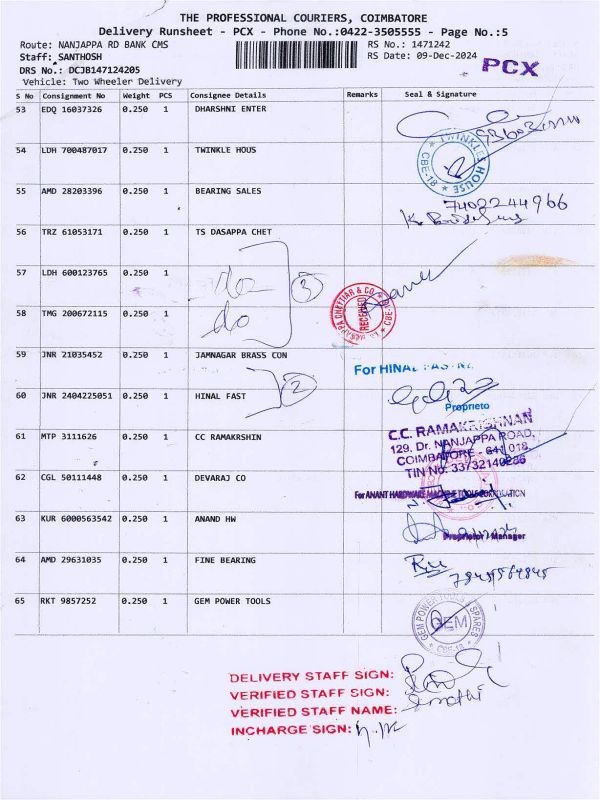 THE PROFESSIONAL COURIERS, COIMBATORE
Delivery Runsheet - PCX - Phone No.:0422-3505555 - Page No.:5
Route: NANJAPPA RD BANK CMS RS No.: 1471242
Staff: SANTHOSH RS Date: 09-Dec-2024
PCX
DRS No.: DCJB147124205
Vehicle: Two Wheeler Delivery
S No Consignment No Weight PCS Consignee Details Remarks Seal & Signature
53 EDQ 16037326 0.250 1 DHARSHNI ENTER
54 LDH 700487017 0.250 1 TWINKLE HOUS
TWINKLES HOUSE
CBE-18
55 AMD 28203396 0.250 1 BEARING SALES
7402244966
56 TRZ 61053171 0.250 1 TS DASAPPA CHET
57 LDH 600123765 0.250 1
do
3
58 TMG 200672115 0.250 1
do
RECEIVED
59 JNR 21035452 0.250 1 JAMNAGAR BRASS CON
For HINAL
60 JNR 2404225051 0.250 1 HINAL FAST
2
Proprieto
61 MTP 3111626 0.250 1 CC RAMAKRSHIN
C.C. RAMAKRISHNAN
129, Dr. NANJAPPA ROAD,
COIMBATORE - 641 018.
TIN No: 33732140286
62 CGL 50111448 0.250 1 DEVARAJ CO
For ANANT HARDWARE MACHINE TOOLS CORPORATION
63 KUR 6000563542 0.250 1 ANAND HW
Proprietor / Manager
64 AMD 29631035 0.250 1 FINE BEARING
65 RKT 9857252 0.250 1 GEM POWER TOOLS
GEM POWER TOOLS SPARES
GEM
CBE-18
DELIVERY STAFF SIGN:
VERIFIED STAFF SIGN:
VERIFIED STAFF NAME:
INCHARGE SIGN: